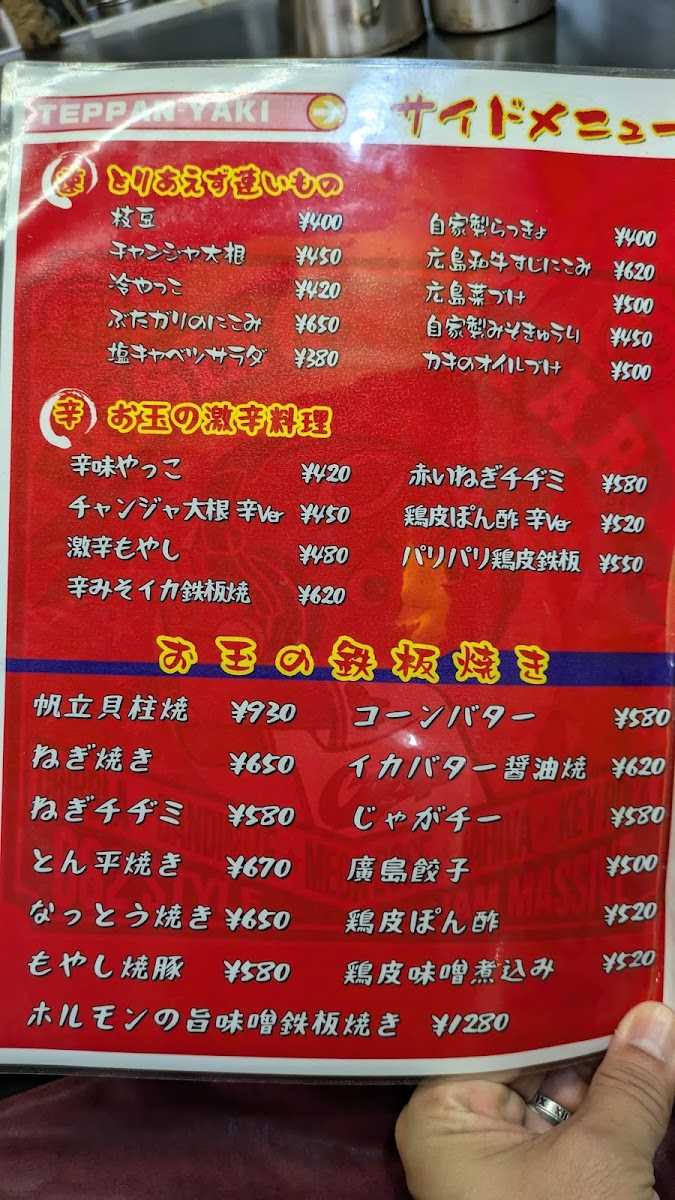 TEPPAN-YAKI
サイドメニュー
速 とりあえず速いもの
枝豆 ¥400
チャンジャ大根 ¥450
冷やっこ ¥420
ぶたガリのにこみ ¥650
塩キャベツサラダ ¥380
自家製らっきょ ¥400
広島和牛すじにこみ ¥620
広島菜づけ ¥500
自家製みそきゅうり ¥450
カキのオイルづけ ¥500
辛 お玉の激辛料理
辛味やっこ ¥420
チャンジャ大根 辛Ver ¥450
激辛もやし ¥480
辛みそイカ鉄板焼 ¥620
赤いねぎチヂミ ¥580
鶏皮ぽん酢 辛Ver ¥520
パリパリ鶏皮鉄板 ¥550
お玉の鉄板焼き
帆立貝柱焼 ¥930
ねぎ焼き ¥650
ねぎチヂミ ¥580
とん平焼き ¥670
なっとう焼き ¥650
もやし焼豚 ¥580
ホルモンの旨味噌鉄板焼き ¥1280
コーンバター ¥580
イカバター醤油焼 ¥620
じゃがチー ¥580
廣島餃子 ¥500
鶏皮ぽん酢 ¥520
鶏皮味噌煮込み ¥520